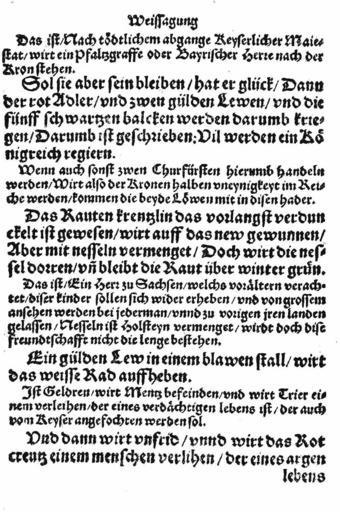 Weissagung
Das ist/Nach tödtlichem abgange Keyserlicher Maie-
stat/wirt ein Pfaltzgraffe oder Bayrischer Herre nach der
Kron stehen.
Sol sie aber sein bleiben/hat er glück/Dann
der rot Adler/vnd zwen gülden Lewen/vnd die
fünff schwartzen balcken werden darumb krie-
gen/Darumb ist geschrieben: Vil werden ein Kö
nigreich regiern.
Wenn auch sonst zwen Churfürsten hierumb handeln
werden/Wirt also der Kronen halben vneynigkeyt im Rei-
che werden/kommen die beyde Löwen mit in disen hader.
Das Rauten krentzlin das vorlangst verdun
ckelt ist gewesen/wirt auff das new gewunnen/
Aber mit nesseln vermenget/Doch wirt die nes-
sel dorren/vñ bleibt die Raut über winter grün.
Das ist/Ein Herr zu Sachsen/welchs vorältern verach-
tet/diser kinder sollen sich wider erheben/vnd von grossem
ansehen werden bei jederman/vnnd zu vorigen jren landen
gelassen/Nesseln ist Holsteyn vermenget/wirdt doch dise
freundtschafft nicht die lenge bestehen.
Ein gülden Lew in einem blawen stall/wirt
das weisse Rad auffheben.
Ist Geldren/wirt Mentz befeinden/vnd wirt Trier ei-
nem verleihen/der eines verdächtigen lebens ist/der auch
vom Keyser angefochten werden sol.
Vnd dann wirt vnfrid/vnnd wirt das Rot
creutz einem menschen verlihen/der eines argen
lebens